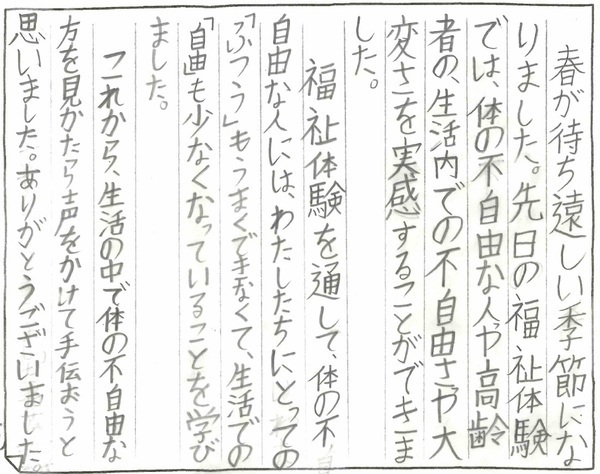 春が待ち遠しい季節にな
りました。先日の福祉体験
では、体の不自由な人や高齢
者の、生活内での不自由さや大
変さを実感することができま
した。
福祉体験を通して、体の不
自由な人には、わたしたちにとっての
「ふつう」もうまくできなくて、生活での
「自由」も少なくなっていることを学び
ました。
これから、生活の中で体の不自由な
方を見かたら声をかけて手伝おうと
思いました。ありがとうございました。